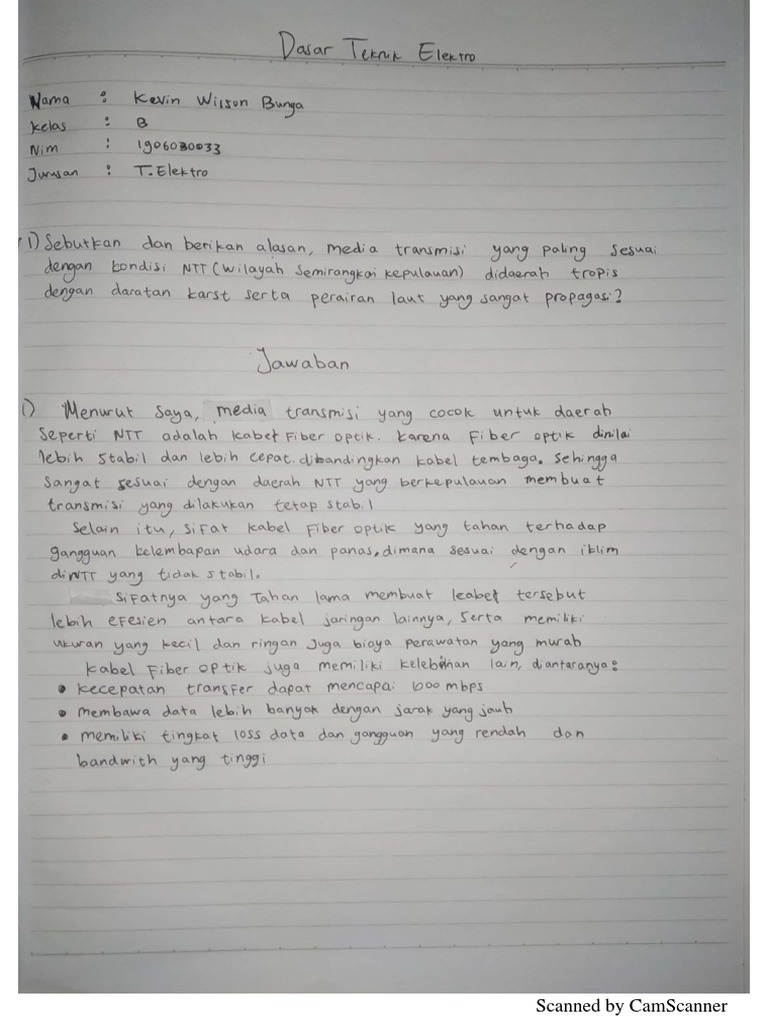 Dasar Teknik Elektro
Nama : Kevin Wilson Bunga
Kelas : B
Nim : 1906030033
Jurusan : T. Elektro
1) Sebutkan dan berikan alasan, media transmisi yang paling sesuai
dengan kondisi NTT (wilayah semirangkai kepulauan) didaerah tropis
dengan daratan karst serta perairan laut yang sangat propagasi?
Jawaban
1) Menurut saya, media transmisi yang cocok untuk daerah
seperti NTT adalah kabel Fiber optik. karena Fiber optik dinilai
lebih stabil dan lebih cepat. dibandingkan kabel tembaga. Sehingga
sangat sesuai dengan daerah NTT yang berkepulauan membuat
transmisi yang dilakukan tetap stabil
Selain itu, siFat kabel Fiber optik yang tahan terhadap
gangguan kelembapan udara dan panas, dimana sesuai dengan iklim
diNTT yang tidak stabil.
siFatnya yang Tahan lama membuat kabel tersebut
lebih eFesien antara kabel jaringan lainnya, serta memiliki
ukuran yang kecil dan ringan Juga biaya perawatan yang murah
kabel Fiber optik juga memiliki kelebihan lain, diantaranya:
• kecepatan transfer dapat mencapai 1000 mbps
• membawa data lebih banyak dengan jarak yang jauh
• memiliki tingkat loss data dan gangguan yang rendah dan
bandwith yang tinggi
Scanned by CamScanner